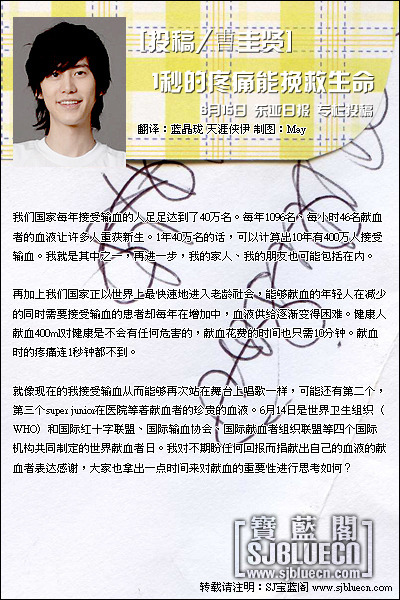 [投稿/曹圭贤]
1秒的疼痛能挽救生命
6月15日 东亚日报 专栏投稿
翻译：蓝晶珑 天涯侠伊 制图：May
我们国家每年接受输血的人足足达到了40万名。每年1096名、每小时46名献血
者的血液让许多人重获新生。1年40万名的话，可以计算出10年有400万人接受
输血。我就是其中之一，再进一步，我的家人、我的朋友也可能包括在内。
再加上我们国家正以世界上最快速地进入老龄社会，能够献血的年轻人在减少
的同时需要接受输血的患者却每年在增加中，血液供给逐渐变得困难。健康人
献血400ml对健康是不会有任何危害的，献血花费的时间也只需10分钟。献血
时的疼痛连1秒钟都不到。
就像现在的我接受输血从而能够再次站在舞台上唱歌一样，可能还有第二个，
第三个super junior在医院等着献血者的珍贵的血液。6月14日是世界卫生组织（
WHO）和国际红十字联盟、国际输血协会、国际献血者组织联盟等四个国际
机构共同制定的世界献血者日。我对不期盼任何回报而捐献出自己的血液的献
血者表达感谢，大家也拿出一点时间来对献血的重要性进行思考如何？
[寶藍閣]
SJBLUECN
www.sjbluecn.com
转载请注明：SJ宝蓝阁 www.sjbluecn.com